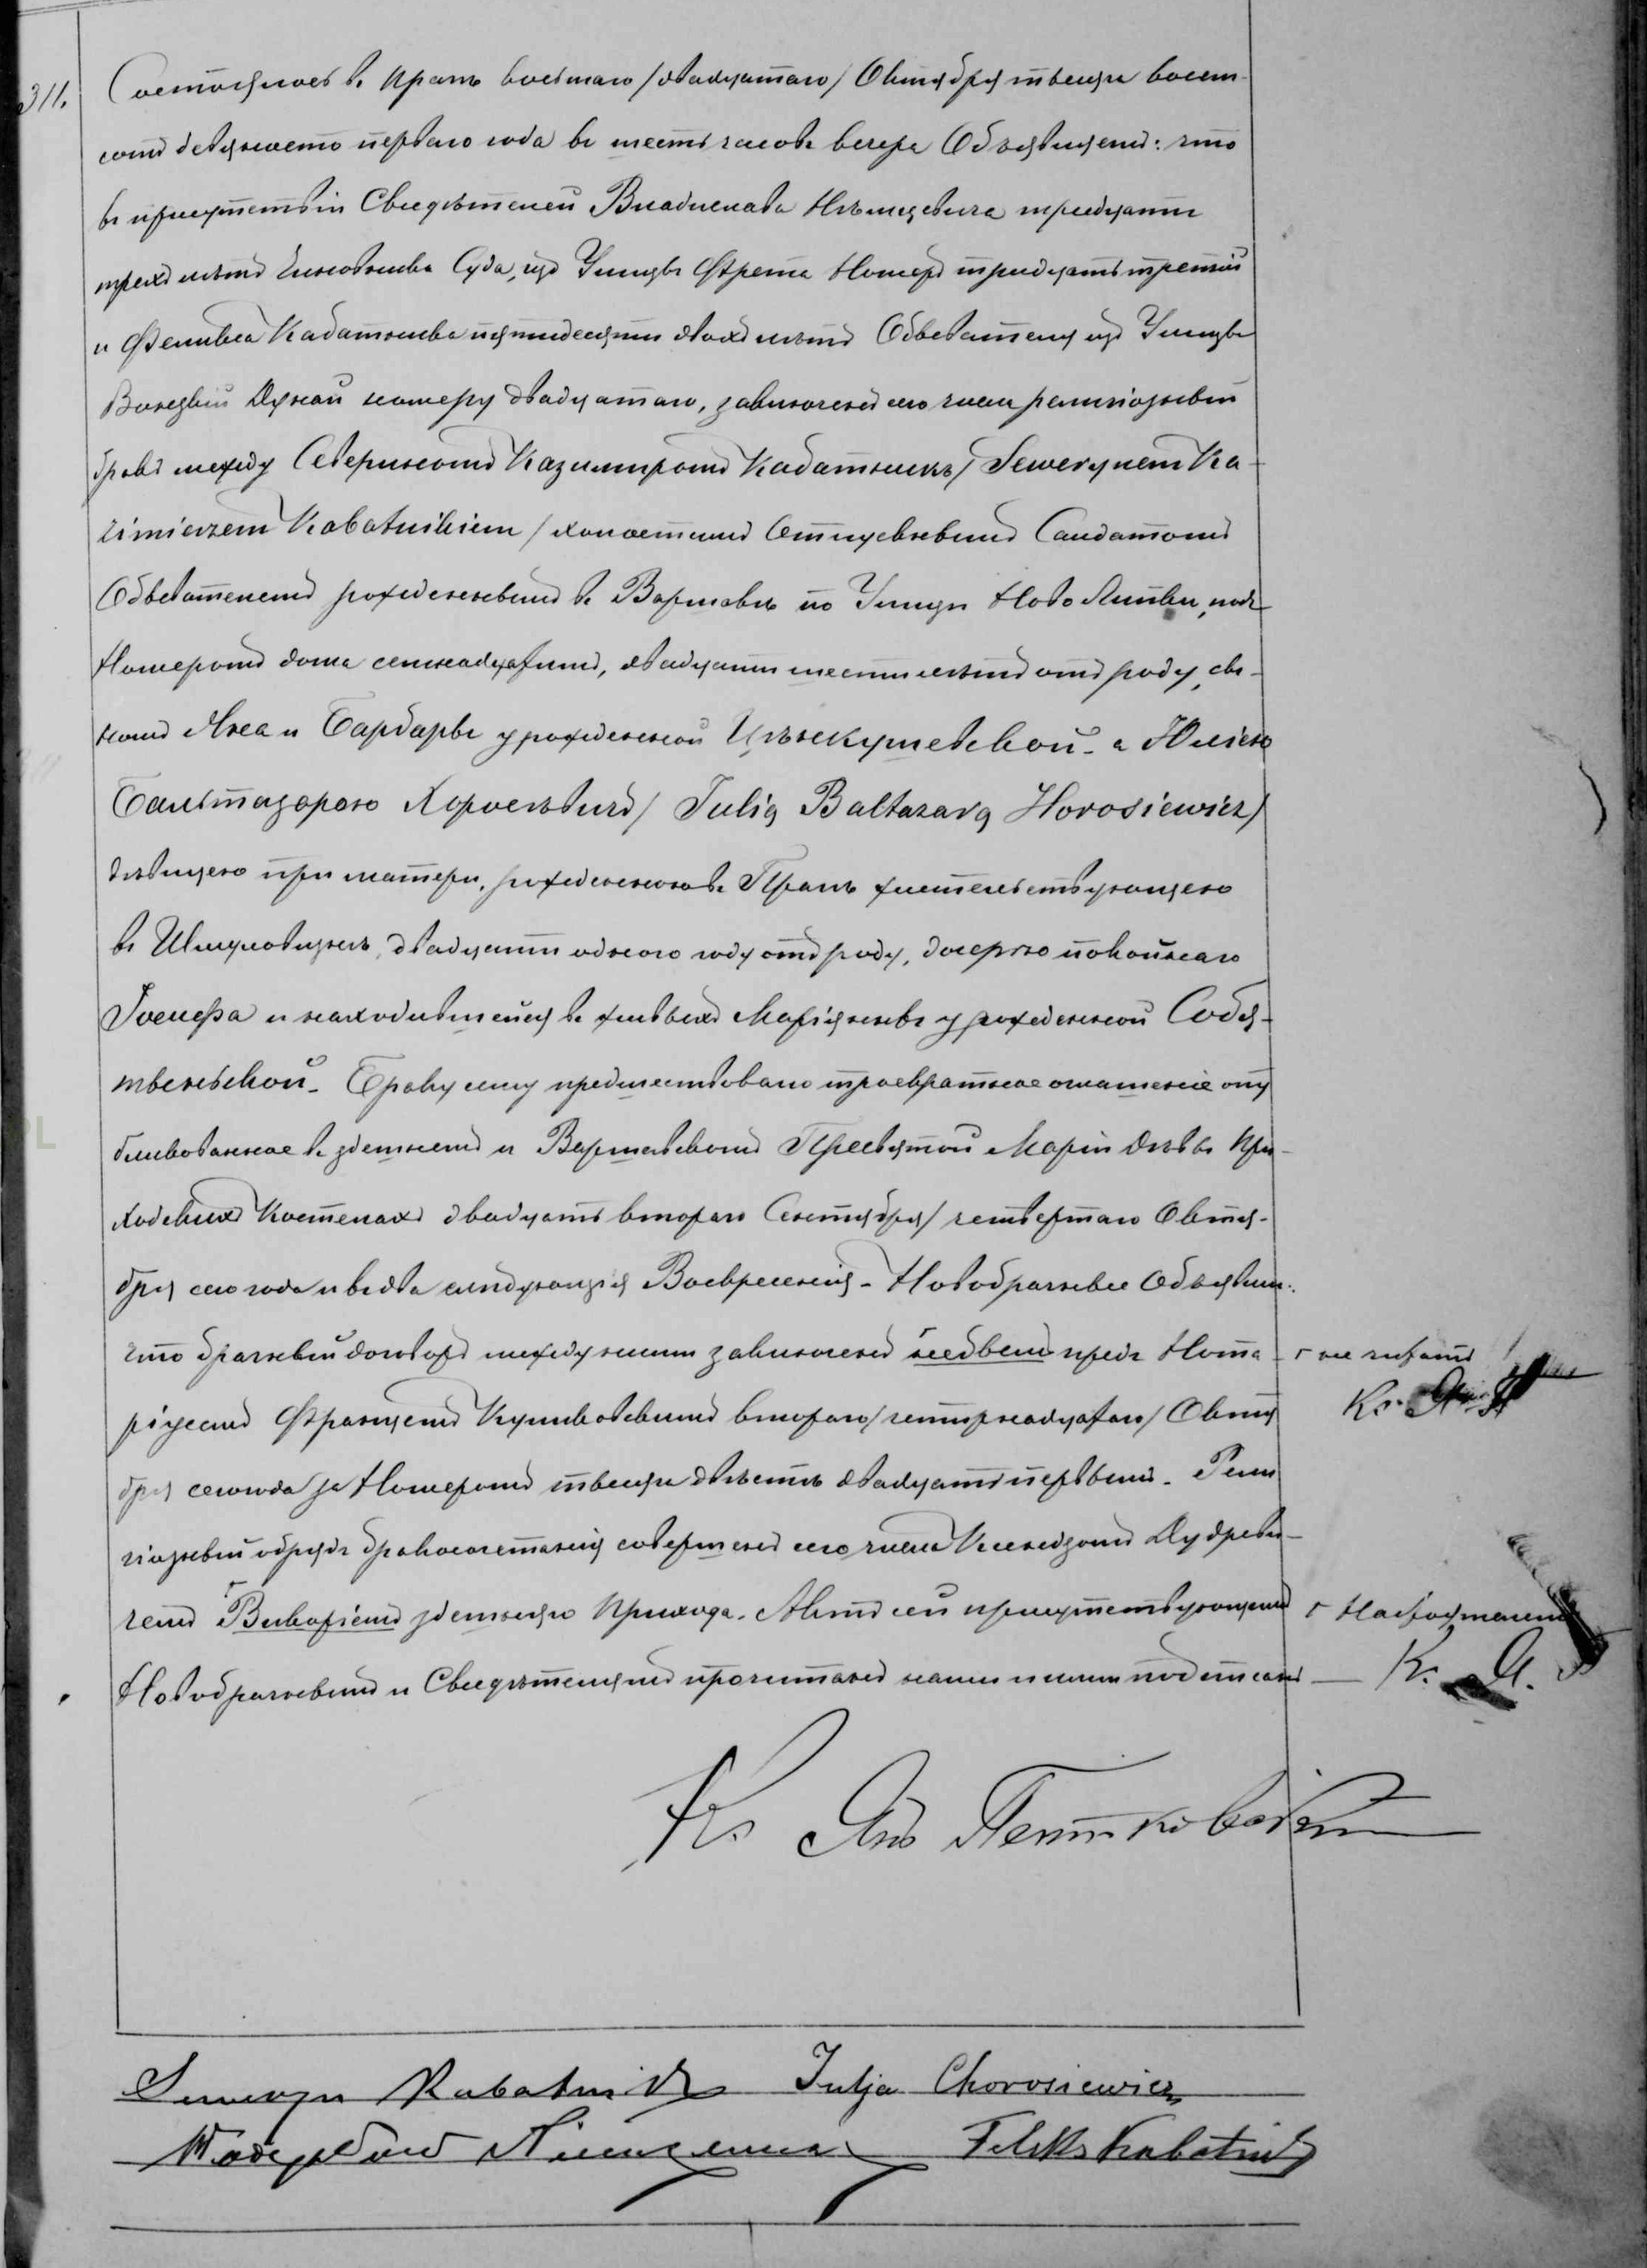 311.
Состоялось въ Прагѣ восьмаго /двадцатаго/ Октября тысяча восем-
сотъ девяносто перваго года въ шесть часовъ вечера. Объявляемъ: что
въ присутствіи Свидѣтелей Владислава Нѣмцевича тридцати
трехъ лѣтъ Чиновника Суда, изъ Улицы Фрета Номеръ тридцать третій
и Феликса Кабатника пятидесяти двухъ лѣтъ Обывателя изъ Улицы
Вонзкій Дунай номеру двадцатаго, заключенъ сего числа религіозный
бракъ между Севериномъ Казимиромъ Кабатникъ / Sewerynem Ka-
zimierzem Kabatnikiem / холостымъ Отпускнымъ Солдатомъ
Обывателемъ рожденнымъ въ Варшавѣ по Улицѣ Ново Липки, подъ
Номеромъ дома семнадцатымъ, двадцати шести лѣтъ отъ роду, сы-
номъ Яна и Барбары урожденной а Юліею
Бальтазарою Хоросѣвичъ / Julią Baltazarą Horosiewicz /
дѣвицею при матери, рожденною въ Прагѣ жительствующею
въ двадцати одного году отъ роду, дочерью покойнаго
Іосифа и находившейся въ живыхъ Маріянны урожденной Собя-
Браку сему предшествовало троекратное оглашеніе опу
бликованное въ здѣшнемъ и Варшавскомъ Пресвятой Маріи Дѣвы При-
ходскихъ Костелахъ двадцать втораго Сентября / четвертаго Октя-
бря сего года и въ два слѣдующія Воскресенія - Новобрачные Объявили:
что брачный договоръ между ними заключенъ предъ Нота- г не читать
ріусомъ Францемъ втораго /четырнадцатаго/ Октя Кс. Я. П
бря сего года за Номеромъ тысяча двѣстѣ двадцать первымъ. Рели
гіозный обрядъ бракосочетанія совершенъ сего числа Ксендзомъ
Викаріемъ здѣшняго Прихода. Актъ сей присутствующимъ г Настоятелемъ
Новобрачнымъ и Свидѣтелямъ прочитанъ нами и ими подписанъ — К. Я. П
Кс Янъ
Seweryn Kabatnik Julja Chorosiewicz
Władysław Niemcewicz Feliks Kabatnik